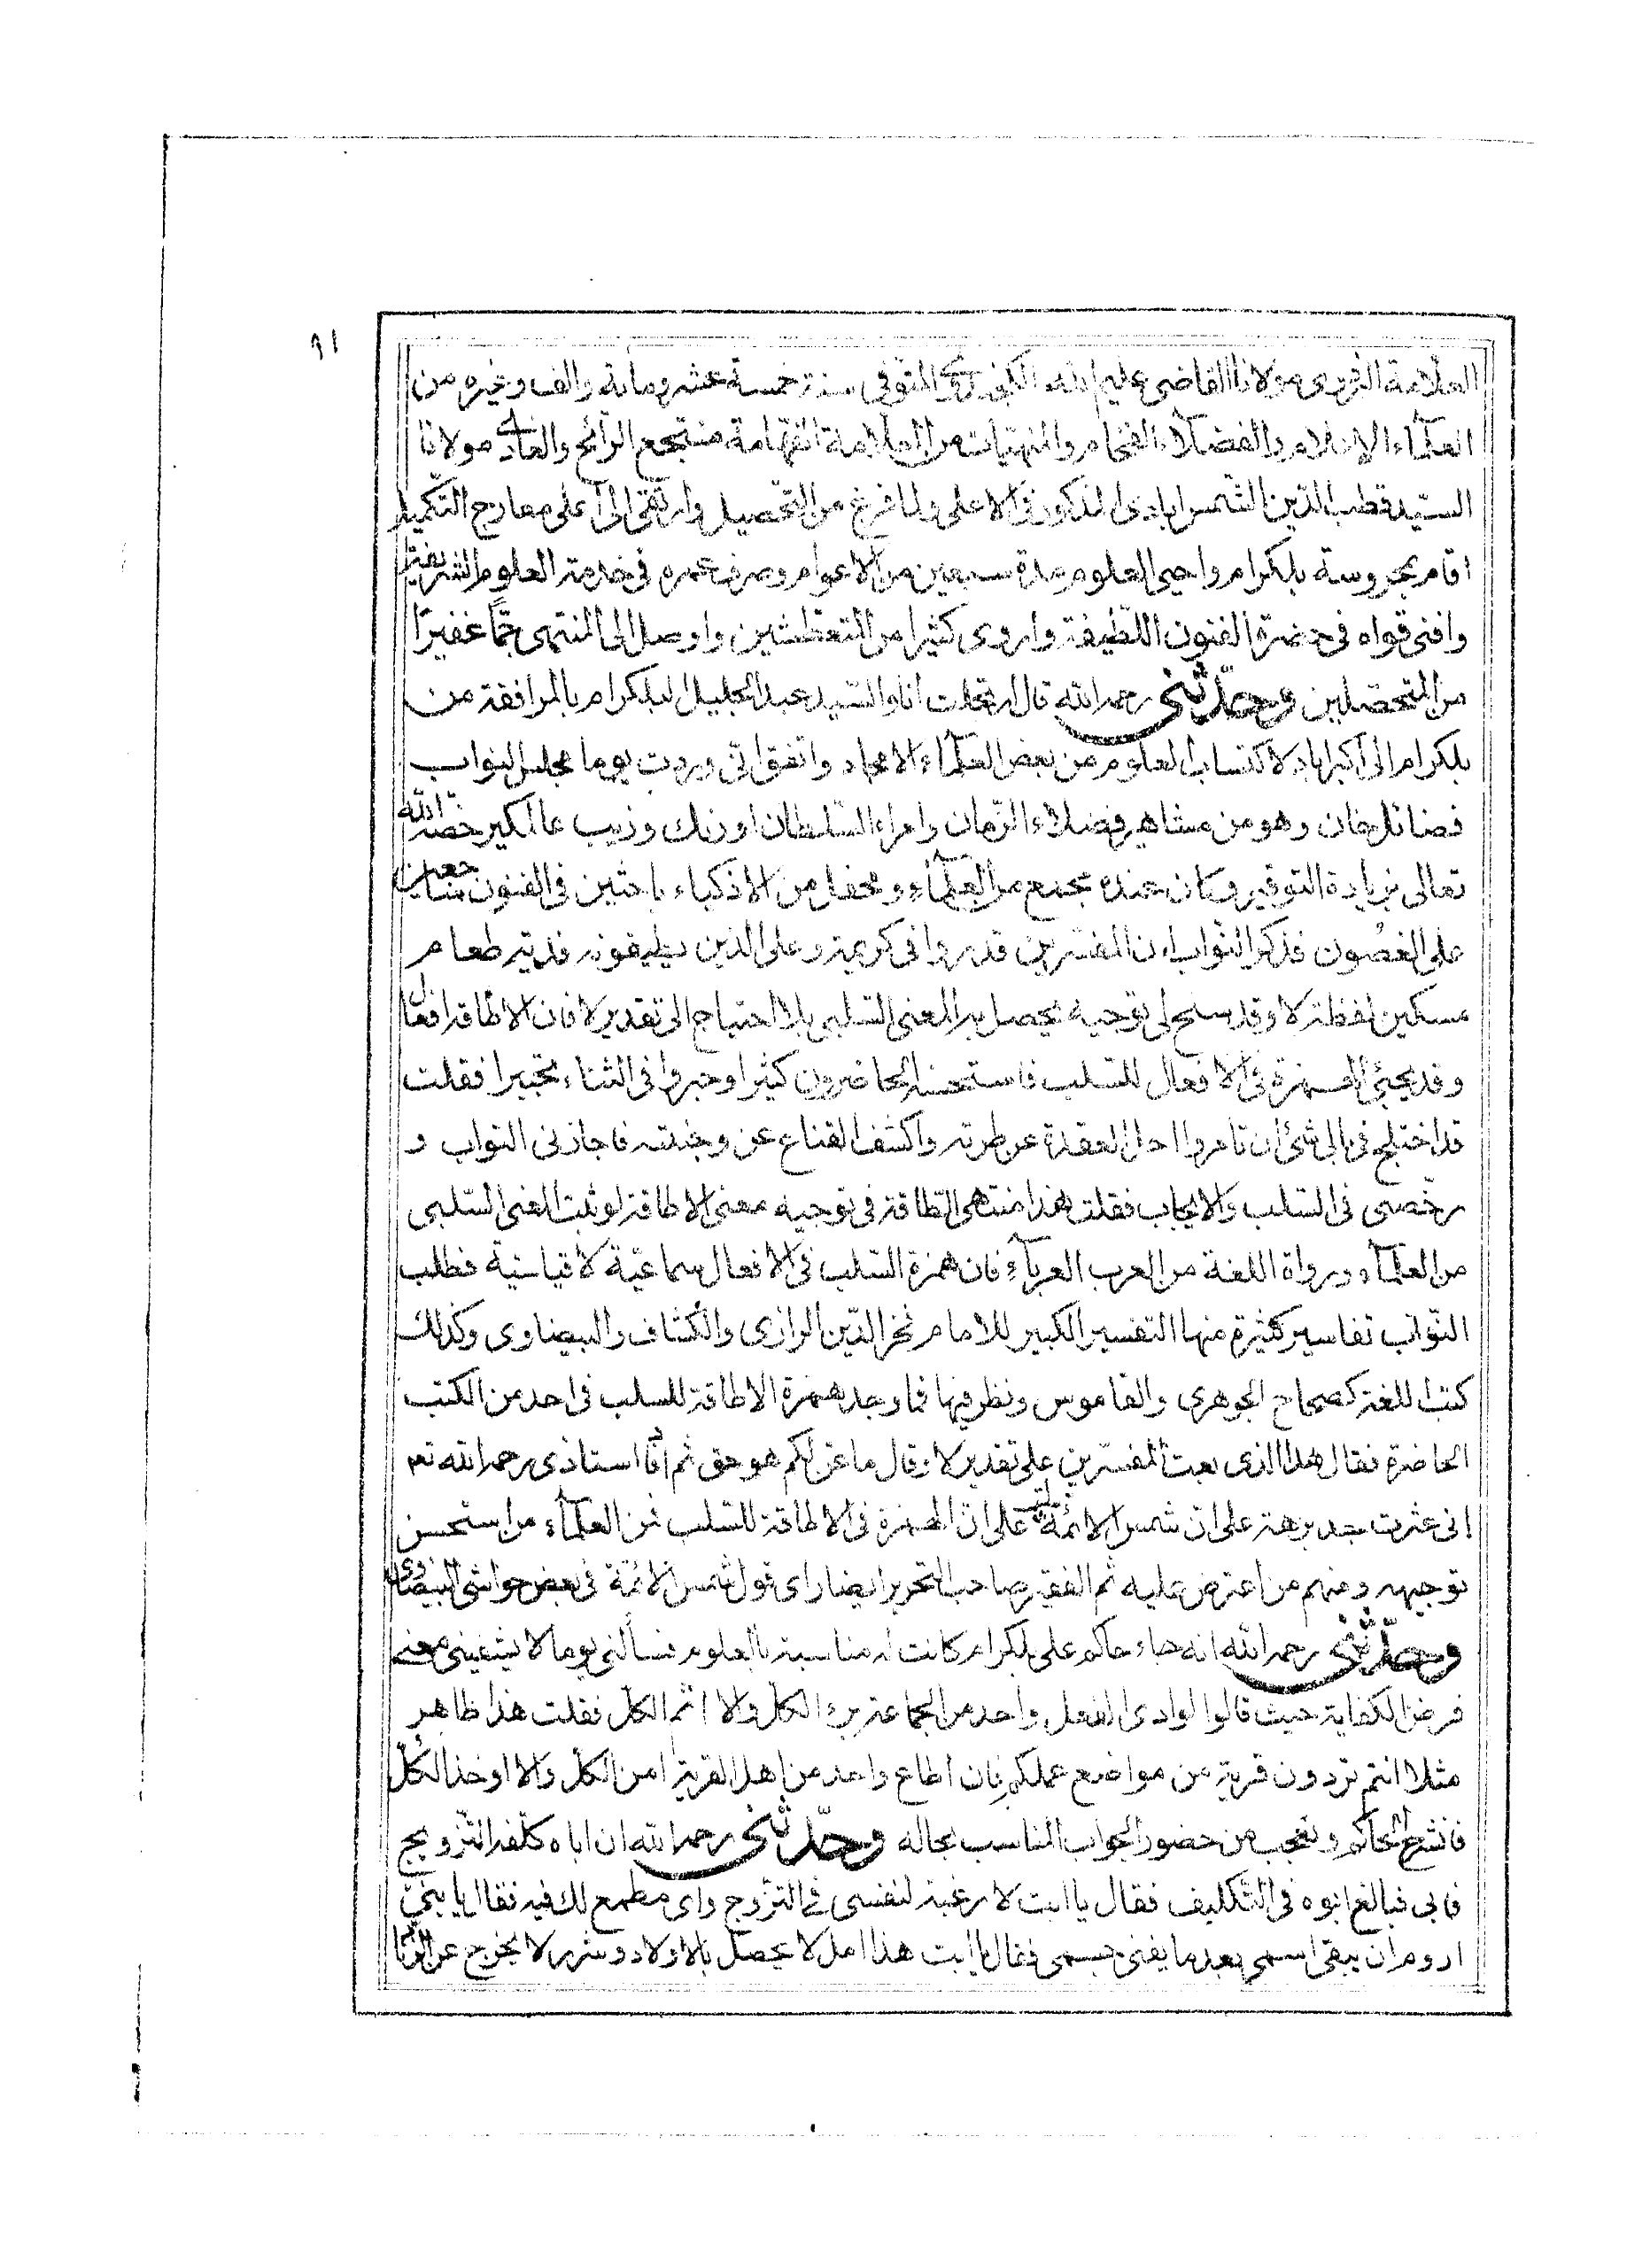 ٩١
العلامة الفردى مولانا القاضى عليم الله الكچندوى المتوفى سنة خمسة عشر ومائة والف وغيره من
العلماء الاعلام والفضلاء الفخام والمنتهيات من العلامة الفهامة منتجع الرائح والغادى مولانا
السيد قطب الدين الشمس ابادى المذكور فى الاعلى ولما فرغ من التحصيل وارتقى الى اعلى معارج التكميل
اقام بمحروسة بلكرام واحيى العلوم مدة سبعين من الاعوام وصرف عمره فى خدمة العلوم الشريفة
وافنى قواه فى حضرة الفنون اللطيفة واروى كثيرا من المتعطشين واوصل الى المنتهى جمًّا غفيرًا
من المتحصلين وحدّثنى رحمه الله قال ارتحلت انا والسيد عبد الجليل البلكرام بالمرافقة من
بلكرام الى اكبراباد لاكتساب العلوم من بعض العلماء الامجاد واتفق انى وردت يوما مجلس النواب
فضائل خان وهو من مشاهير فضلاء الزمان وامراء السلطان اورنك وزيب عالمكير خصه الله
تعالى بزيادة التوقير وكان عنده مجمع من العلماء ومحفل من الاذكياء باحثين فى الفنون
على الغصون فذكر النواب ان المفسرين قدروا فى كريمة وعلى الذين يطيقونه فدية طعام
مسكين لفظة لا وقد سنح لى توجيه يحصل به المعنى السلبى بلا احتياج الى تقدير لا فان الاطاقة افعال
وقد يجئ الهمزة فى الافعال للسلب فاستحسنه الحاضرون كثيرا وحبروا فى الثناء تحبيرا فقلت
قد اختلج فى بالى شئ ان تامروا احل العقدة عن طرته واكشف القناع عن وجنته فاجازنى النواب و
رخصى فى السلب والايجاب فقلت هذا منتهى الطاقة فى توجيه معنى الاطاقة لو ثبت المعنى السلبى
من العلماء ورواة اللغة من العرب العرباء فان همزة السلب فى الافعال سماعية لا قياسية فطلب
النواب تفاسير كثيرة منها التفسير الكبير للامام فخر الدين الرازى والكشاف والبيضاوى وكذلك
كتب اللغة كصحاح الجوهرى والقاموس ونظر فيها فما وجد همزة الاطاقة للسلب فى احد من الكتب
الحاضرة فقال هذا الذى بعث المفسرين على تقدير لا وقال ما عن لكم هو حق ثم افا استاذى رحمه الله تع
انى عثرت بعد برهة على ان شمس الائمة على ان الهمزة فى الاطاقة للسلب فمن العلماء من استحسن
توجيهه ومنهم من اعترض عليه ثم الفقير صاحب التحرير ايضا راى قول شمس الائمة فى بعض حواشى البيضاوى
وحدّثنى رحمه الله انه جاء حاكم على بلكرام كانت له مناسبة بالعلوم فسألنى يوما لا يشفينى معنى
فرض الكفاية حيث قالوا لو ادى الفعل واحد من الجماعة برء الكل والا اثم الكل فقلت هذا ظاهر
مثلا انتم تردون قرية من مواضع عملكم فان اطاع واحد من اهل القرية امن الكل والا اوخذ الكل
فانشرح الحاكم وتعجب من حضور الجواب المناسب بحاله وحدّثنى رحمه الله ان اباه كلفه التزويج
فابى فبالغ ابوه فى التكليف فقال يا ابت لا رغبة لنفسى فى التزوج واى مطمع لك فيه فقال يا بنى
اروم ان يبقى اسمى بعد ما يفنى جسمى فقال يا ابت هذا امل لا يحصل بالاولاد وشرر لا يخرج عن